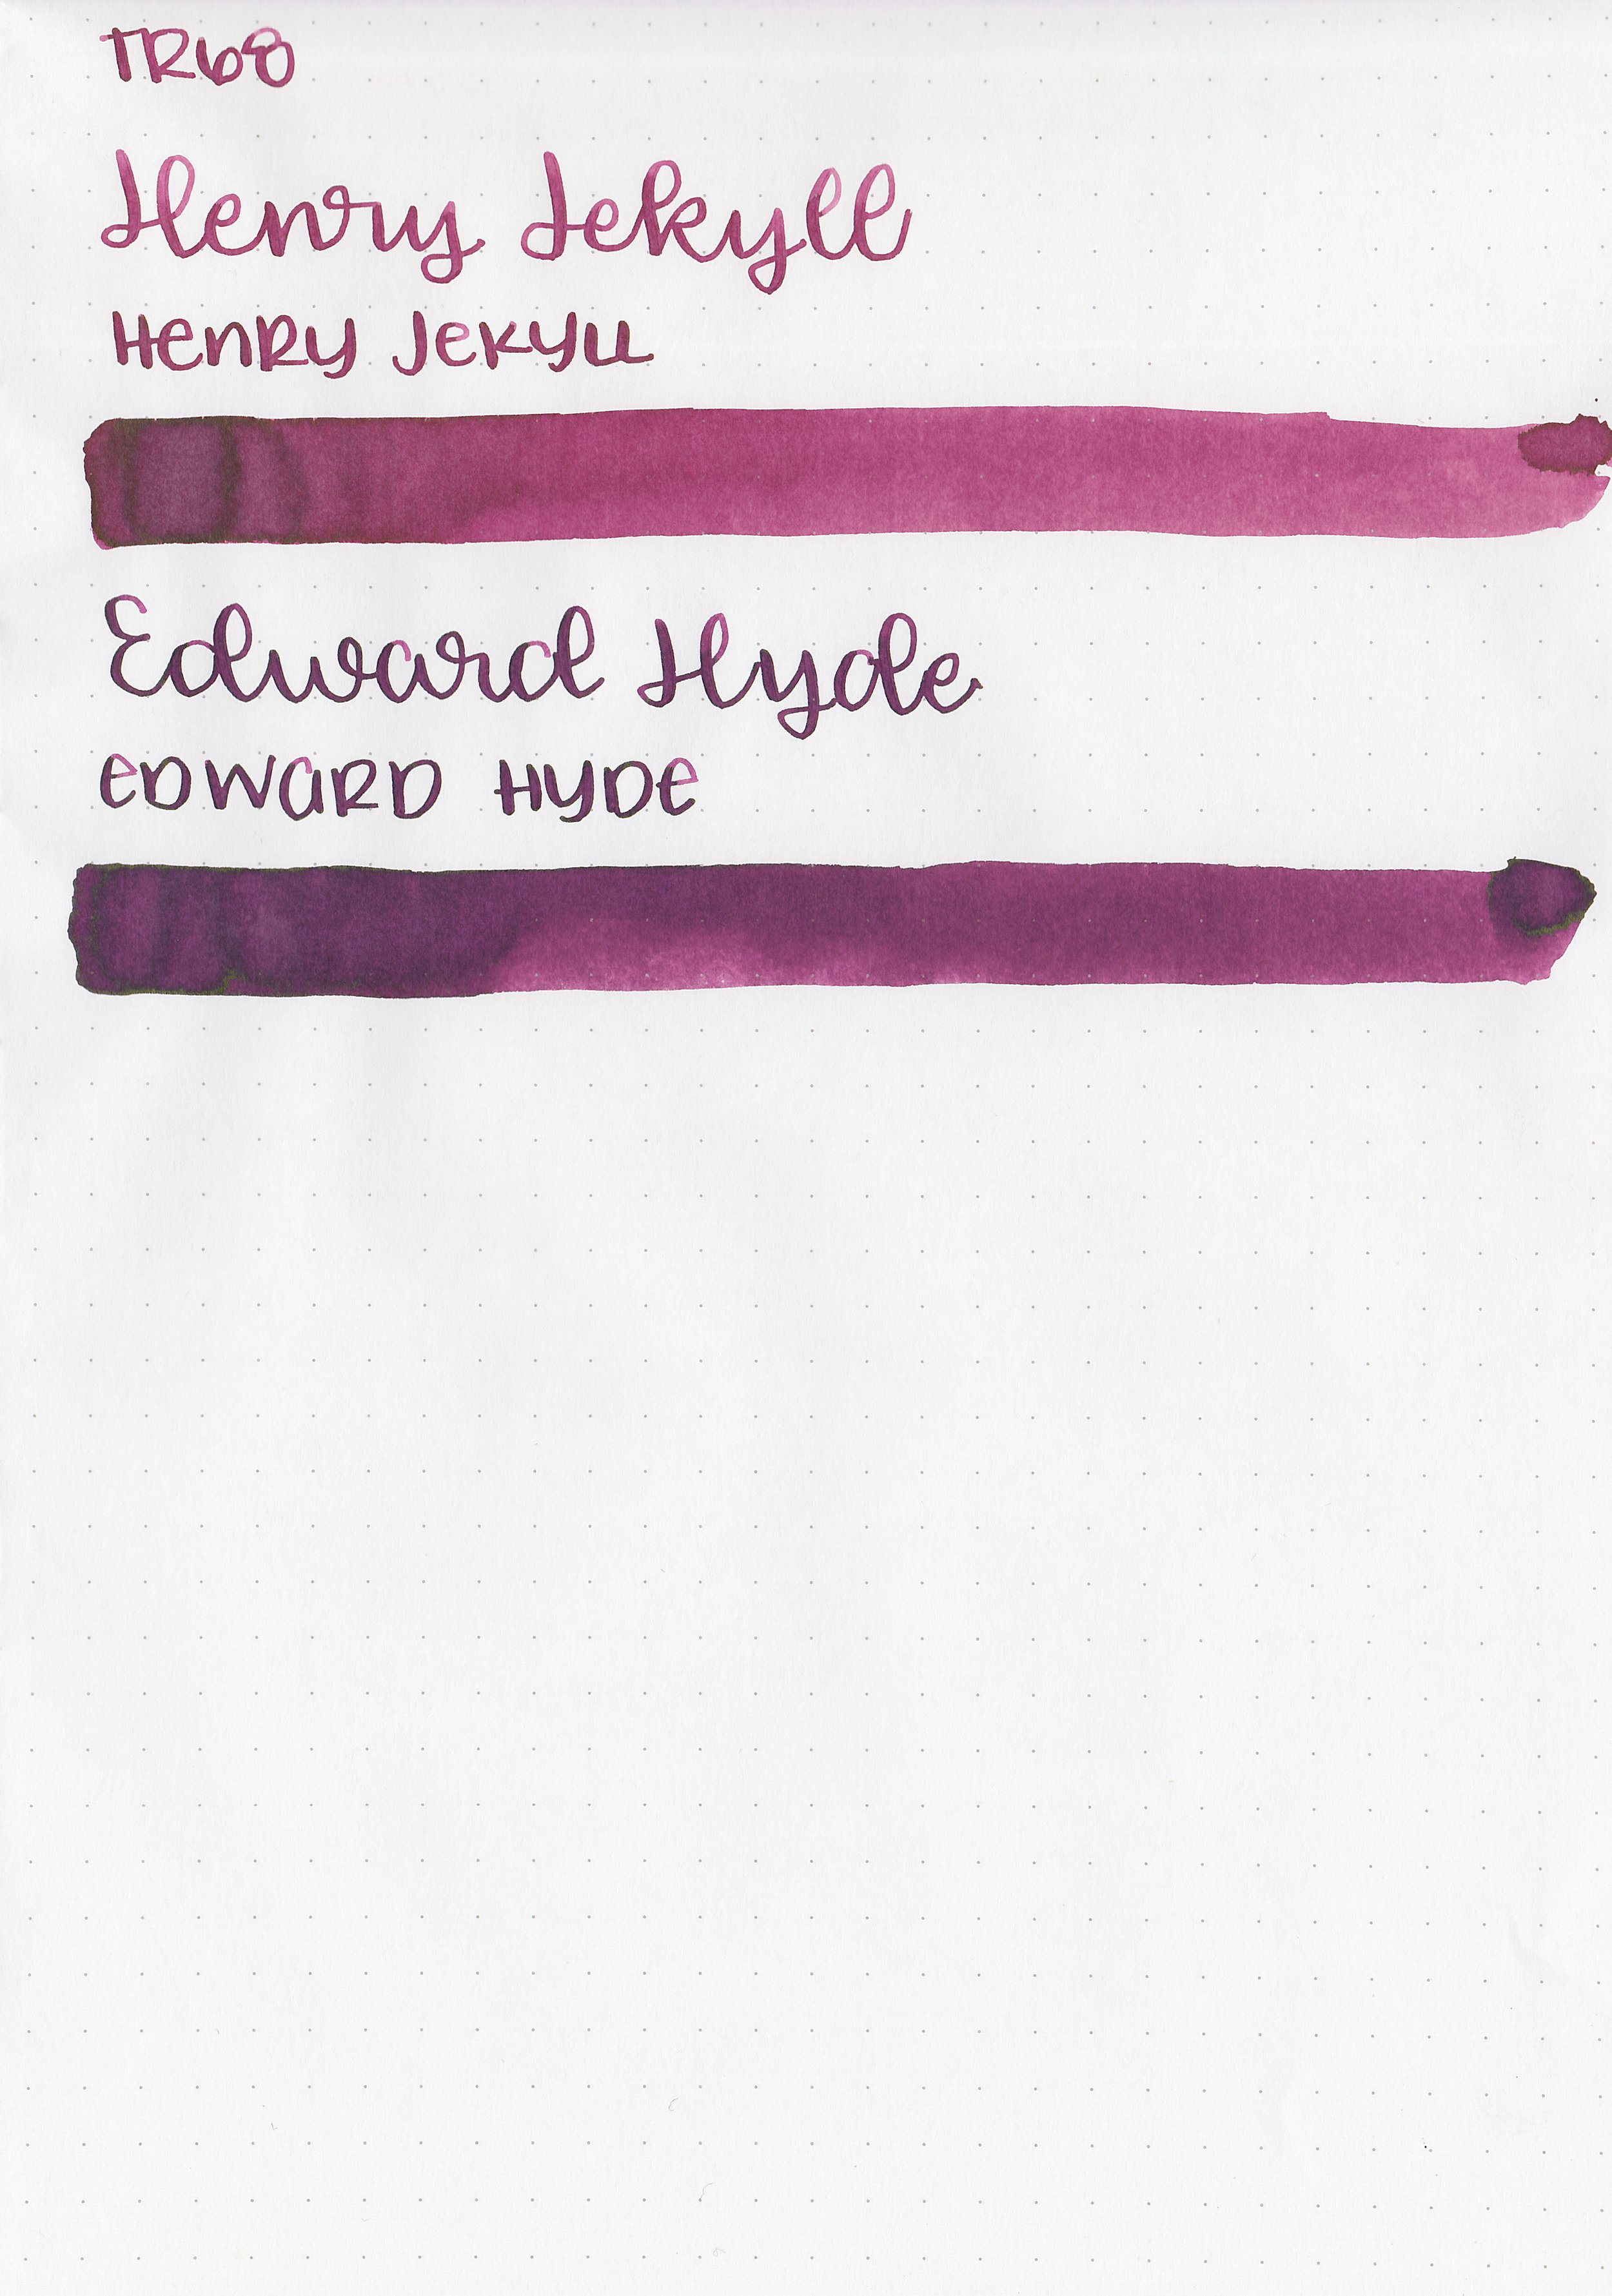 TR68
Henry Jekyll
Henry Jekyll
Edward Hyde
Edward Hyde